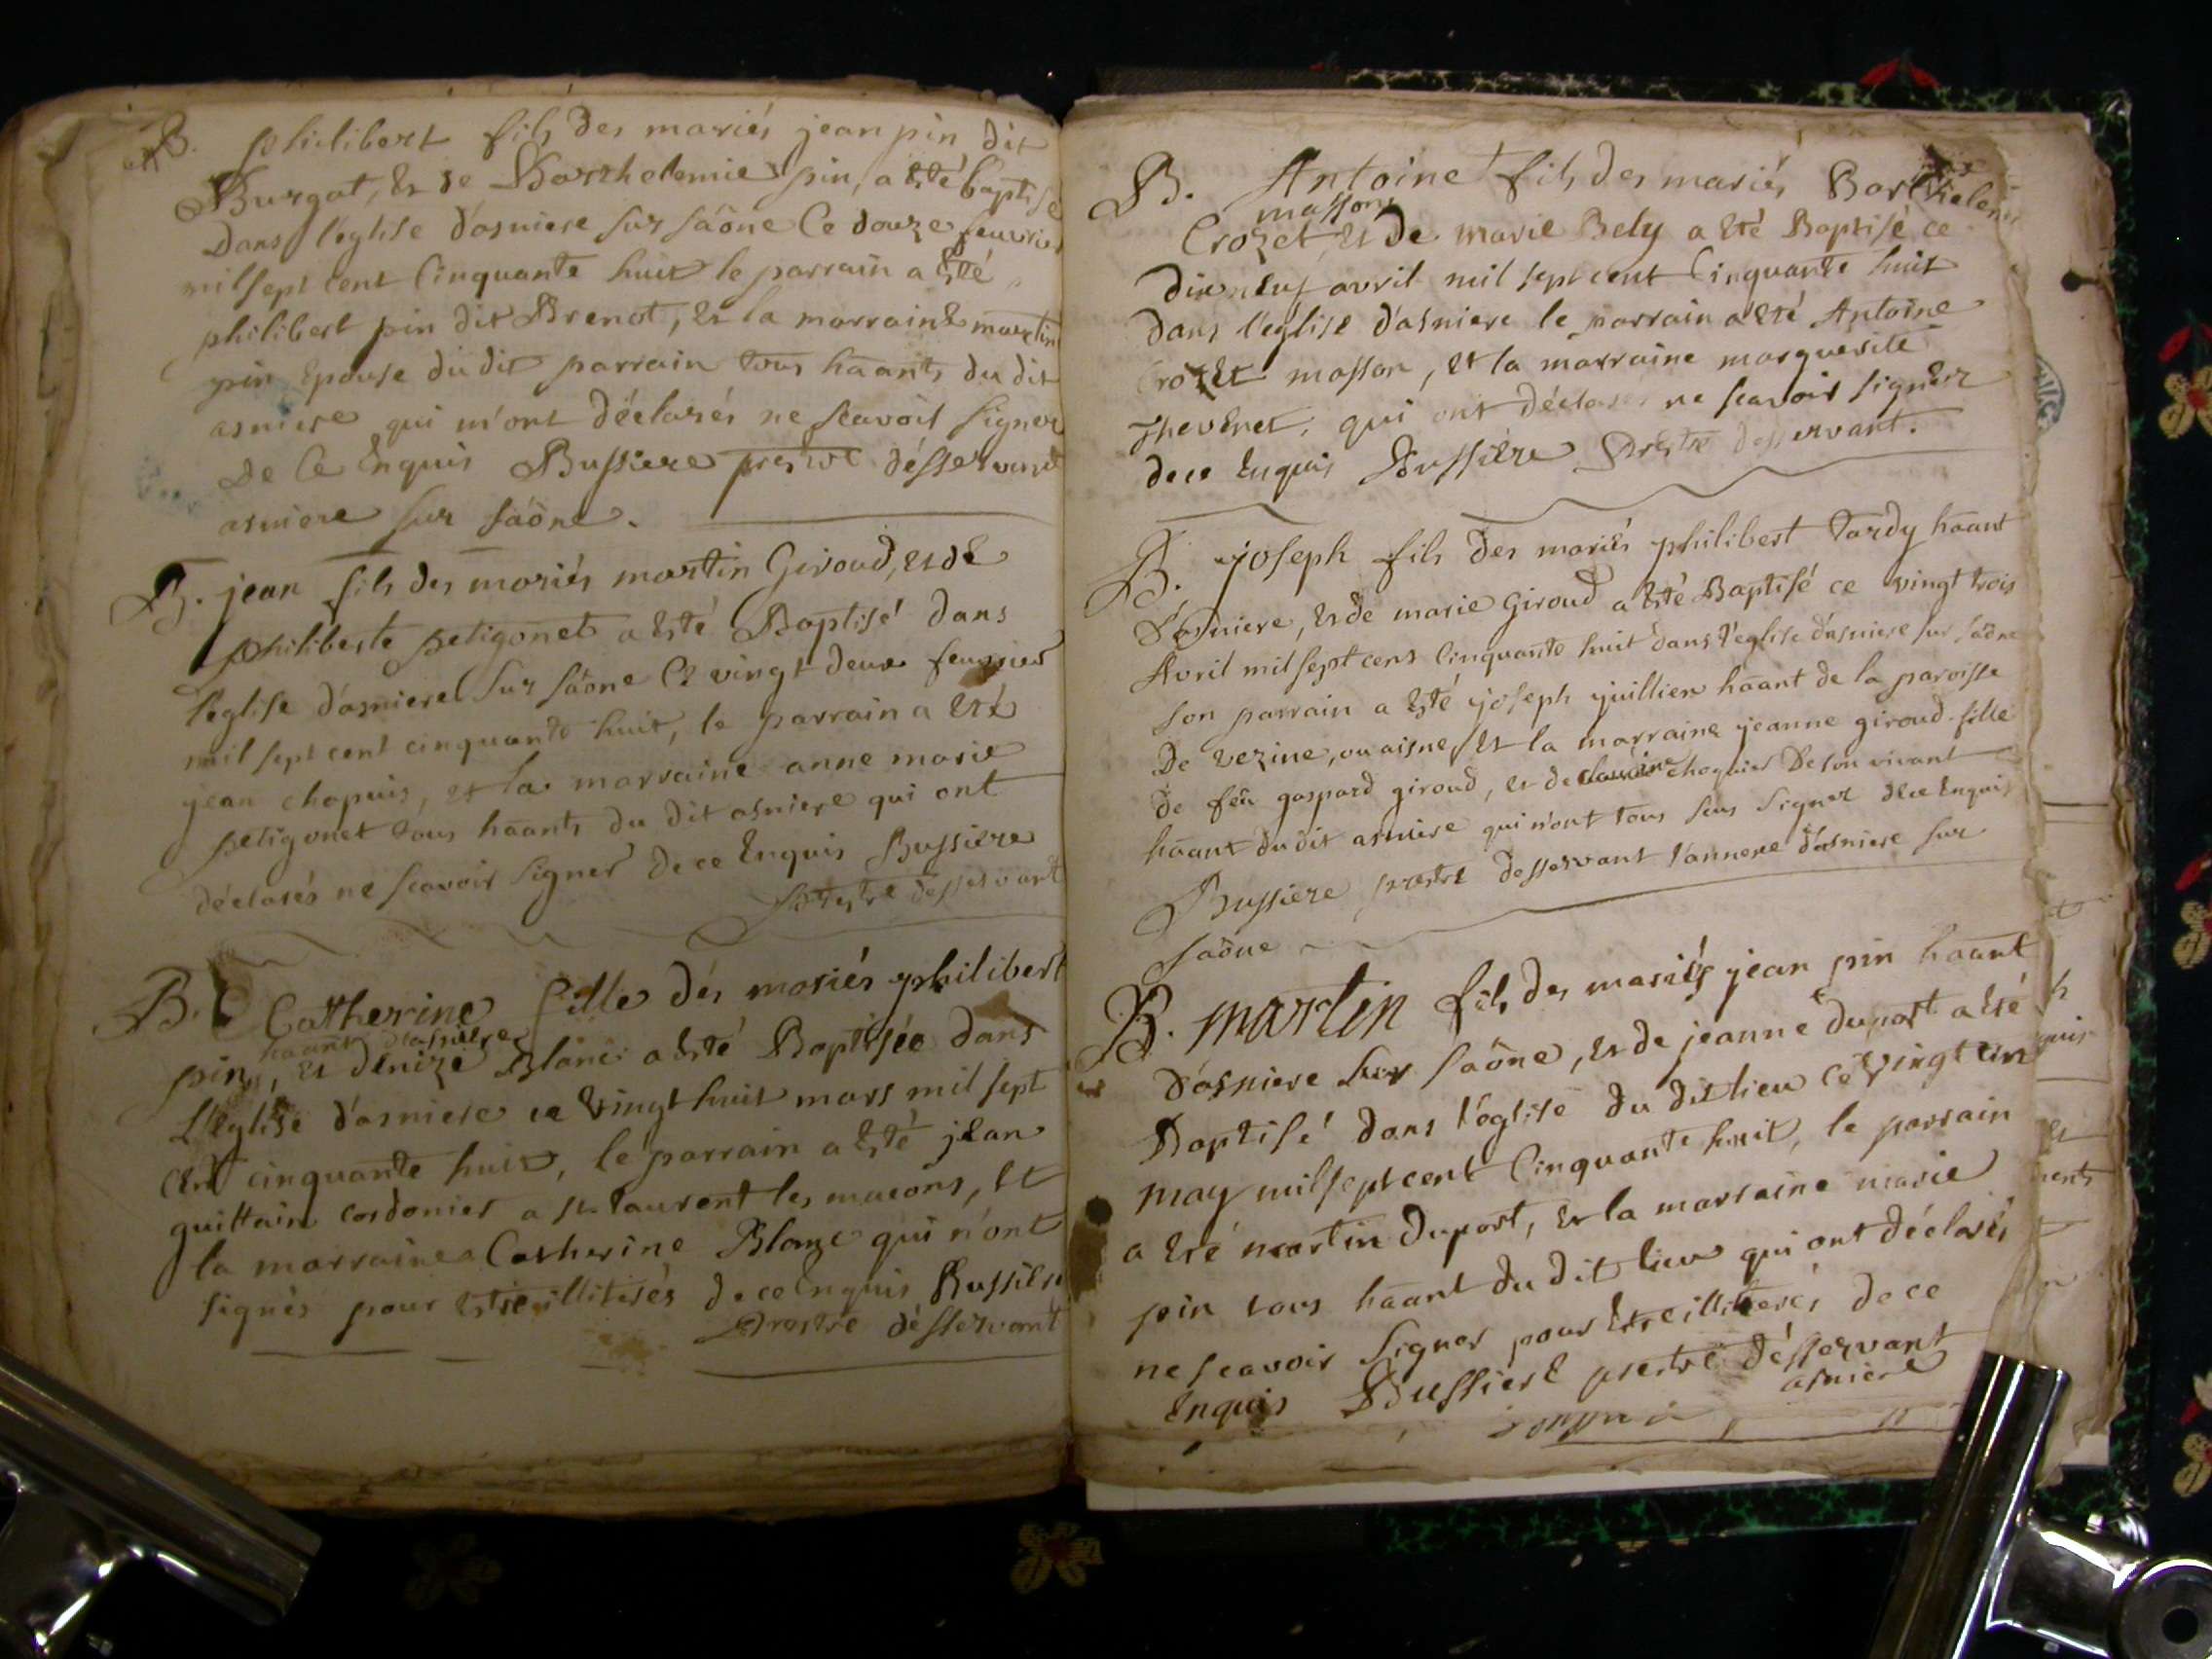 B. philibert fils des mariés jean pin dit
Burgat, et de Barthelemie pin, a esté baptisé
dans l'eglise d'asniere sur saône ce douze feuvrier
mil sept cent cinquante huit le parrain a esté
philibert pin dit Brenot, et la marraine martine
pin epouse du dit parrain tous haants du dit
asniere qui m'ont déclarés ne scavoir signer
de ce enquis Bussiere prestre désservant
asniere sur saône.
B. jean fils des mariés martin Giroud, et de
philiberte petigonet a esté Baptisé dans
l'eglise d'asniere sur saône ce vingt deux feuvrier
mil sept cent cinquante huit, le parrain a esté
jean chapuis, et la marraine anne marie
petigonet tous haants du dit asniere qui ont
déclarés ne scavoir signer de ce enquis Bussiere
prestre desservant
B. Catherine fille dés mariés philibert
haant d'asniere
pin, et denize Blanc a esté Baptisée dans
L'eglise d'asniere ce vingt huit mars mil sept
cent cinquante huit, le parrain a esté jean
guittain cordonier a st laurent les macons, et
la marraine Catherine Blanc qui n'ont
signés pour estre illiterés de ce enquis Bussiere
prestre désservant
B. Antoine fils des mariés Barthelemie
masson
Crozet et de marie Bely a eté Baptisé ce
dixneuf avril mil sept cent cinquante huit
dans l'église d'asniere le parrain a eté Antoine
Crozet masson, et la marraine marguerite
thevenet, qui ont déclarés ne scavoir signer
de ce enquis Bussiere prestre desservant.
B. joseph fils des mariés philibert tardy haant
d'asniere, et de marie giroud a esté Baptisé ce vingt trois
Avril mil sept cens cinquante huit dans l'eglise d'asniere sur saône
son parrain a esté joseph juillien haant de la paroisse
de vezine, ou aisne, et la marraine jeanne giroud fille
de feu gaspard giroud, et de claudine choquier de son vivant
haant du dit asniere qui n'ont tous seus signer de ce enquis
Bussiere prestre desservant l'annexe d'asniere sur
saône
B. martin fils des mariés jean pin haant
d'asniere sur saône, et de jeanne duport a esté
Baptisé dans l'église du dit lieu ce vingt un
may mil sept cent cinquante huit, le parrain
a esté martin duport, et la marraine marie
pin tous haant du dit lieu qui ont déclarés
ne scavoir signer pour estre illiterés de ce
enquis Bussiere prestre désservant
asniere